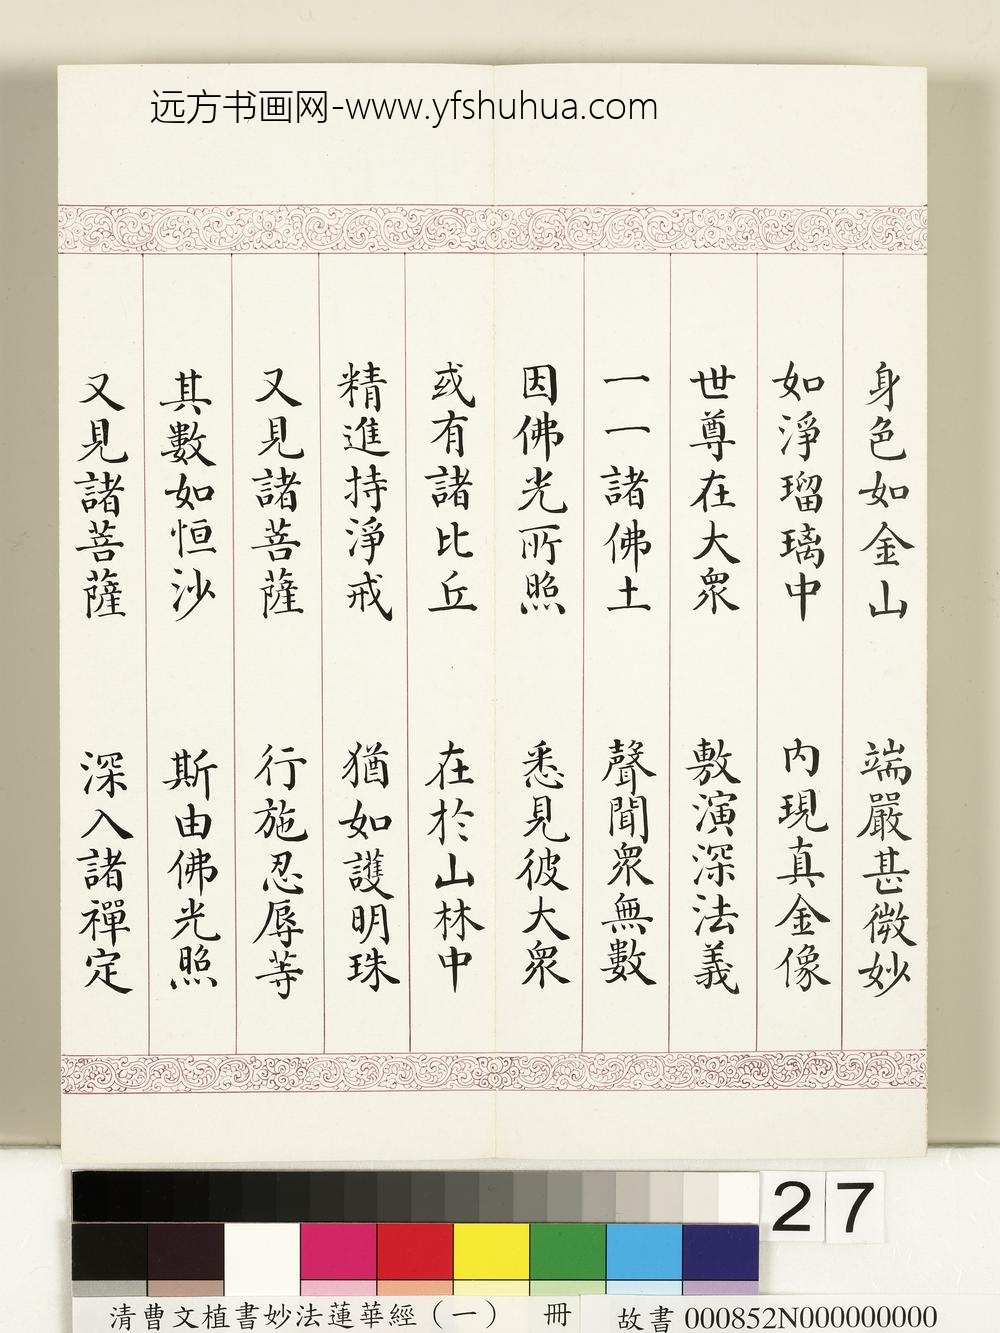 远方书画网-www.yfshuhua.com
身色如金山 端嚴甚微妙
如淨瑠璃中 内現真金像
世尊在大眾 敷演深法義
一一諸佛土 聲聞眾無數
因佛光所照 悉見彼大眾
或有諸比丘 在於山林中
精進持淨戒 猶如護明珠
又見諸菩薩 行施忍辱等
其數如恒沙 斯由佛光照
又見諸菩薩 深入諸禪定
27
清曹文植書妙法蓮華經(一) 冊 故書000852N000000000